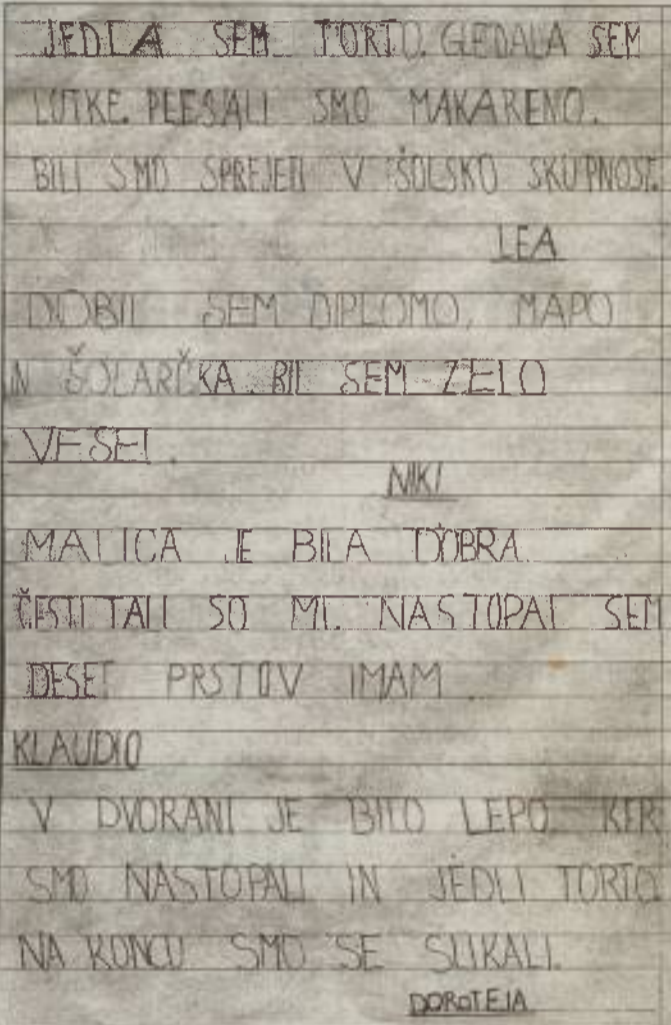 JEDLA SEM TORTO. GLEDALA SEM
LUTKE. PLESALI SMO MAKARENO.
BILI SMO SPREJETI V ŠOLSKO SKUPNOST.
LEA
DOBIL SEM DIPLOMO, MAPO
IN ŠOLARČKA. BIL SEM ZELO
VESEL.
NIKI
MALICA JE BILA DOBRA.
ČESTITALI SO MI. NASTOPAL SEM
DESET PRSTOV IMAM.
KLAUDIO
V DVORANI JE BILO LEPO KER
SMO NASTOPALI IN JEDLI TORTO.
NA KONCU SMO SE SLIKALI.
DOROTEJA